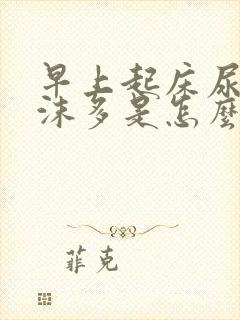 早上起床尿
沫多是怎麼
菲克